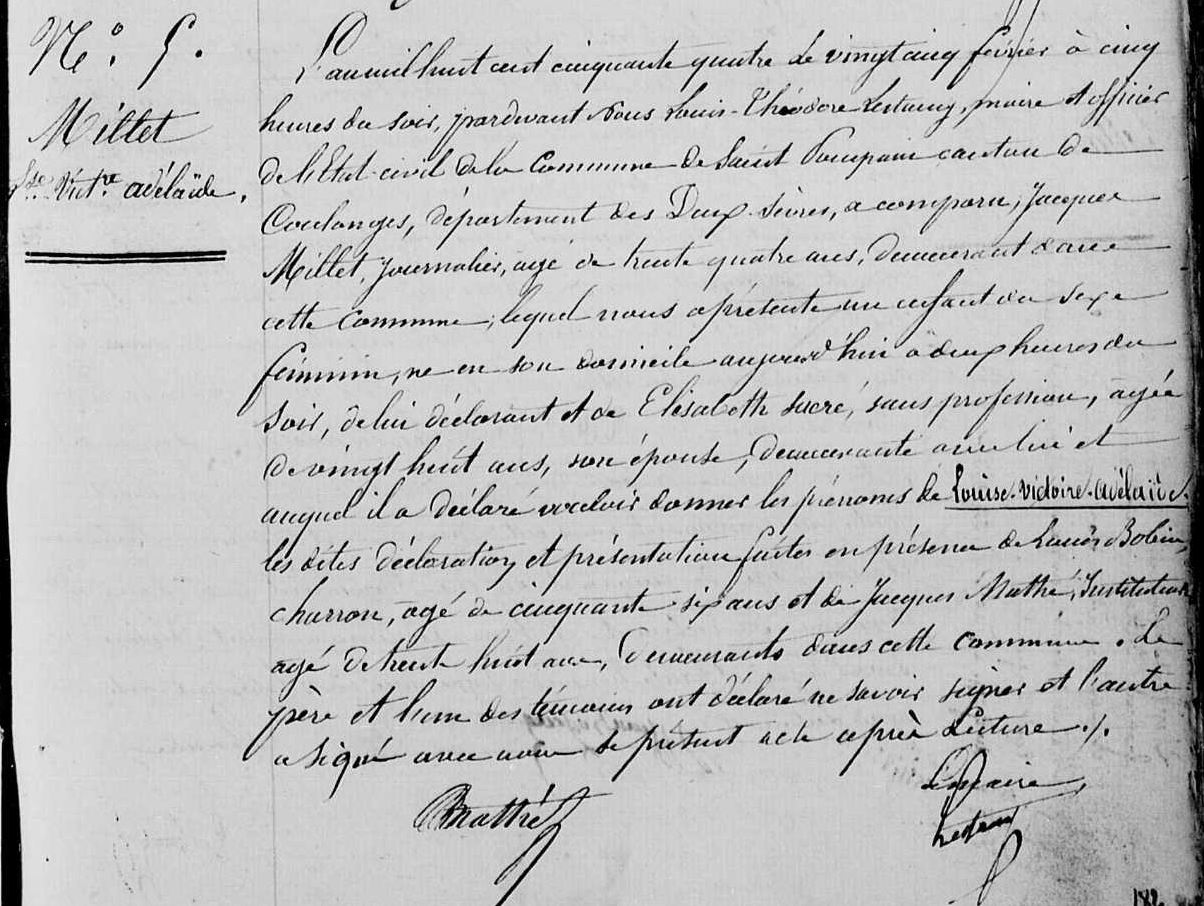 N.° 5.
Millet
Lse. Vict.re adélaïde.
L'an mil huit cent cinquante quatre le vingt cinq février à cinq
heures du soir, pardevant Nous Louis-Théodore, maire et officier
de l'Etat-civil de la Commune de Saint Pompain canton de
Coulonges, département des Deux-Sèvres, a comparu, Jacques
Millet, Journalier, agé de trente quatre ans, demeurant dans
cette Commune, lequel nous a présenté un enfant du sexe
féminin, né en son domicile aujourd'hui à deux heures du
soir, de lui déclarant et de Elisabeth Sacré, sans profession, agée
de vingt huit ans, son épouse, demeurante avec lui et
auquel il a déclaré vouloir donner les prénoms de Louise-Victoire-adélaïde.
les dites déclaration et présentation faites en présence de Louis Bobin,
charron, agé de cinquante six ans et de Jacques Mathé, Instituteur
agé de trente huit ans, demeurants dans cette commune. Le
père et l'un des témoins ont déclaré ne savoir signer et l'autre
a signé avec nous le présent acte après Lecture ./.
Mathé
Le Maire
182